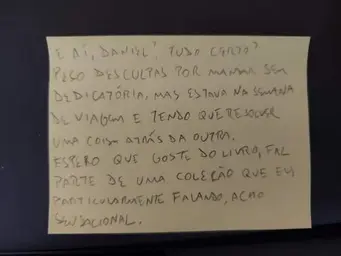 E AÍ, DANIEL! TUDO CERTO?
PEÇO DESCULPAS POR MANDAR SEM
DEDICATÓRIA, MAS ESTAVA NA SEMANA
DE VIAGEM E TENDO QUE RESOLVER
UMA COISA ATRÁS DA OUTRA.
ESPERO QUE GOSTE DO LIVRO, FAZ
PARTE DE UMA COLEÇÃO QUE EU,
PARTICULARMENTE FALANDO, ACHO
SENSACIONAL.